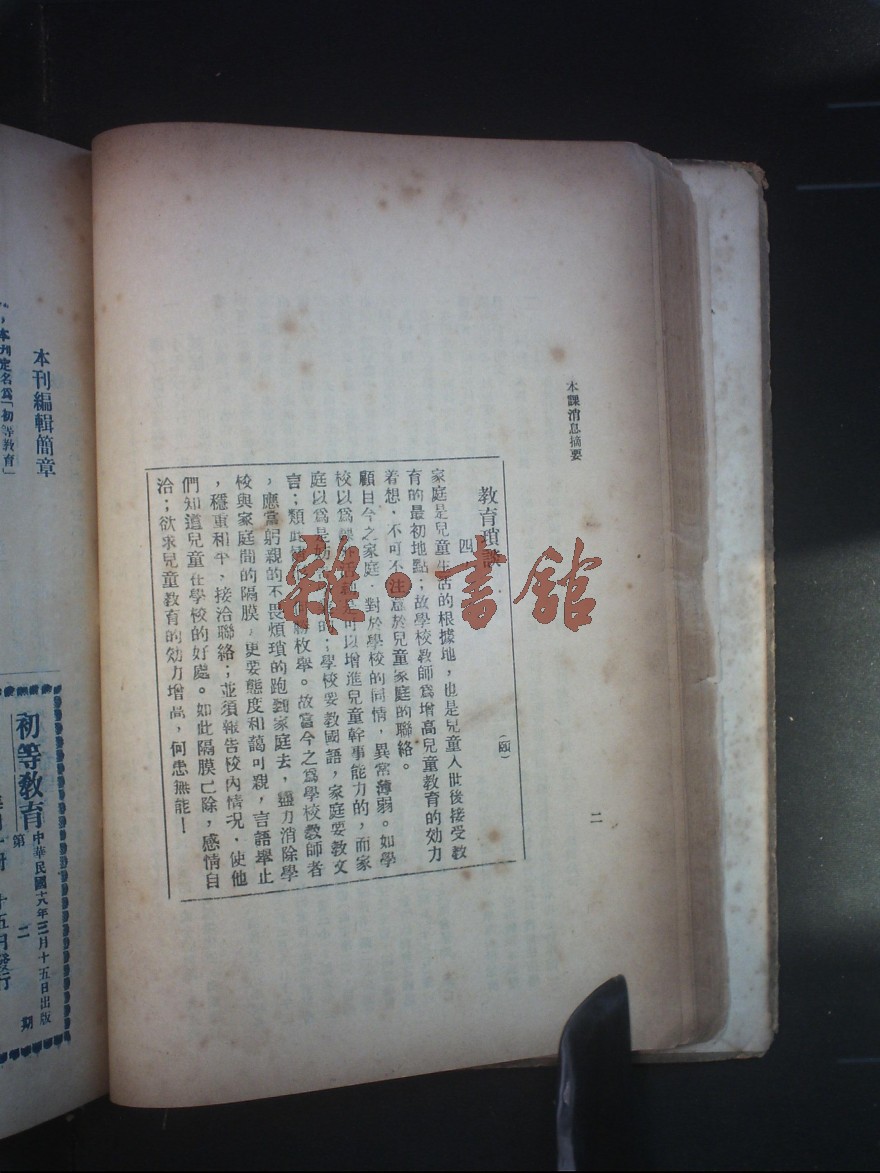 本課消息摘要
二
教育瑣談
四
(頤)
家庭是兒童生活的根據地，也是兒童入世後接受教
育的最初地點；故學校教師爲增高兒童教育的効力
着想，不可不注意於兒童家庭的聯絡。
顧目今之家庭，對於學校的同情，異常薄弱。如學
校以爲課外活動是可以增進兒童幹事能力的，而家
庭以爲是 的；學校要教國語，家庭要教文
言；類此 勝枚舉。故當今之爲學校教師者
，應當躬親的不畏煩瑣的跑到家庭去，盡力消除學
校與家庭間的隔膜，更要態度和藹可親，言語舉止
，穩重和平，接洽聯絡；並須報告校內情況，使他
們知道兒童在學校的好處。如此隔膜已除，感情自
洽；欲求兒童教育的効力增高，何患無能！
雜·書館
本刊編輯簡章
，本刊定名爲「初等教育」
初等教育
第二期
中華民國十八年三月十五日出版
十五日發行